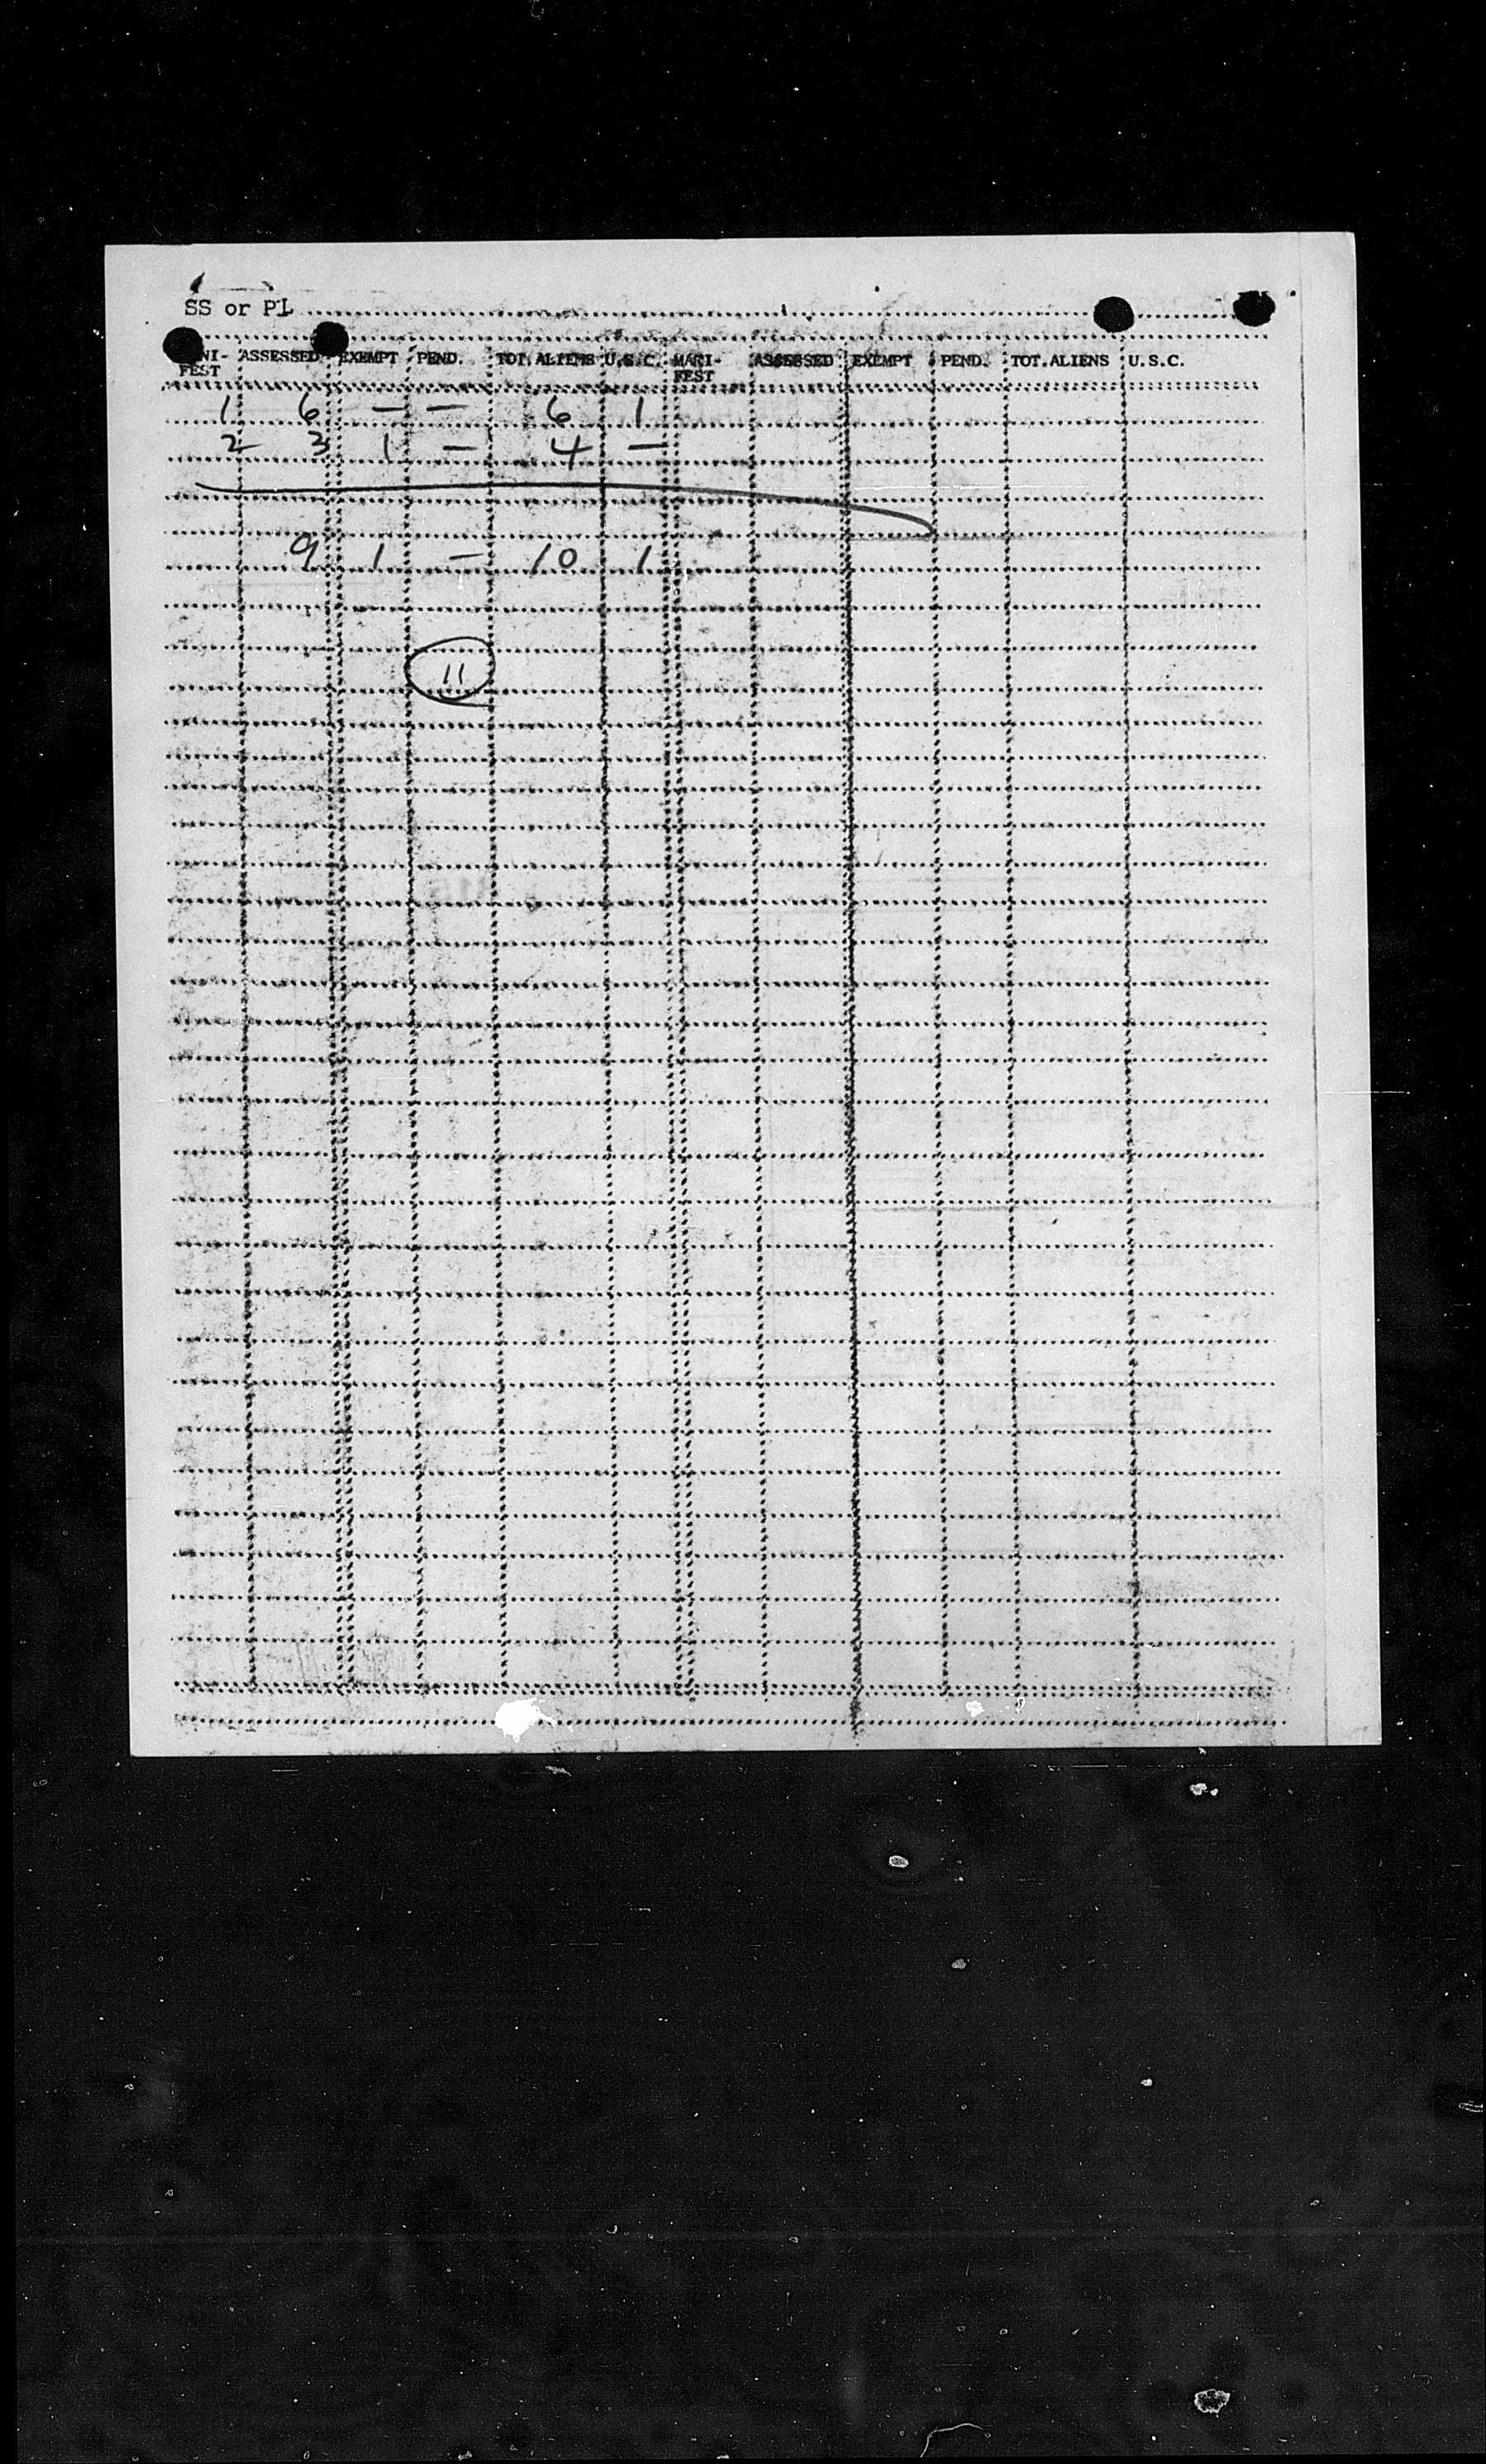 SS or PL
NI- ASSESSED EXEMPT PEND. TOT. ALIENS U.S.C. MARI- ASSESSED EXEMPT PEND. TOT.ALIENS U.S.C.
FEST FEST
1 6 — — 6 1
2 3 1 — 4 —
9 1 — 10 1
11